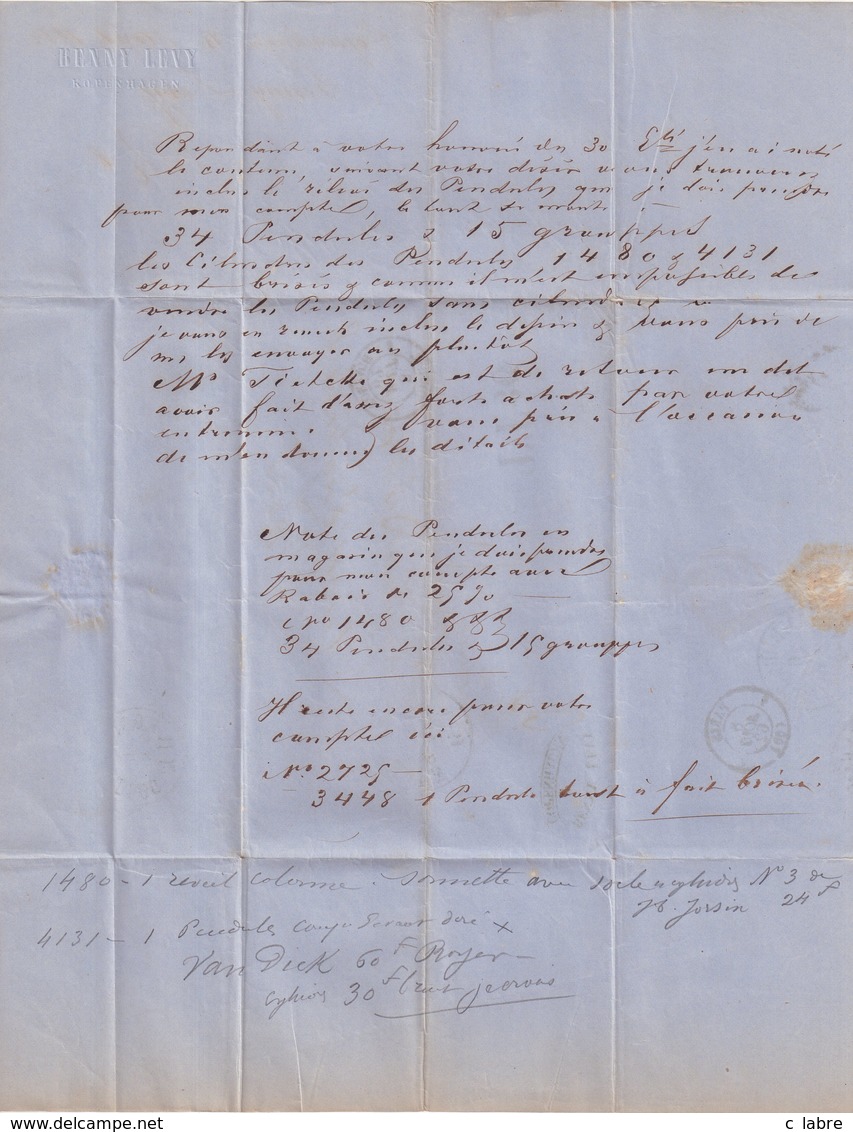 BENNY LEVY
KOPENHAGEN
Repondant à votre honoré du 30 j'en ai noté
le contenu, suivant votre désir vous trouverez
inclus le relevé des Pendules que je dois prendre
pour mon compte, le tout se monte
34 Pendules & 15 grouppes
les Cilindres des Pendules 1480 & 4131
sont brisés & comme il m'est impossibles de
vendre les Pendules sans cilindres
je vous en remets inclus le dessin & vous prie de
me les envoyer au plutôt
Mr qui est de retour me dit
avoir fait d'assez forts achats par votre
entremise. vous prie à l'occasion
de m'en donner les détails
Note des Pendules en
magasin que je dois prendre
pour mon compte avec
Rabais de 25 %
No 1480
34 Pendules & 15 grouppes
Il reste encore pour votre
compte ici
No 2725
3448 1 Pendule tout à fait brisée.
1480 - 1 reveil colonne sonnette avec socle & cylindre No 3 de
24 f
4131 - 1 Pendules doré x
Van Dick 60 f Royer
cylindre 30 f brut
PARIS
delcampe.net
c labre